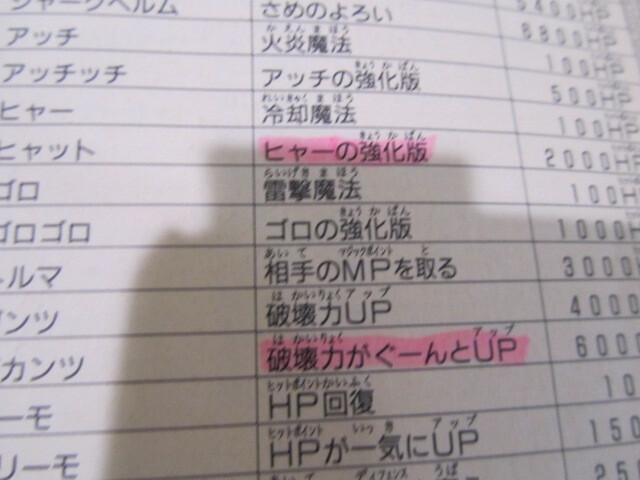 さめのよろい 5400HP
アッチ 火炎魔法 8800HP
アッチッチ アッチの強化版 100HP
ヒャー 冷却魔法 500HP
ヒャット ヒャーの強化版 100HP
ゴロ 雷撃魔法 2000HP
ゴロゴロ ゴロの強化版 100H
相手のMPを取る 1000H
破壊力UP 3000
カンツ 破壊力がぐーんとUP 4000
HP回復 6000
HPが一気にUP 10
150